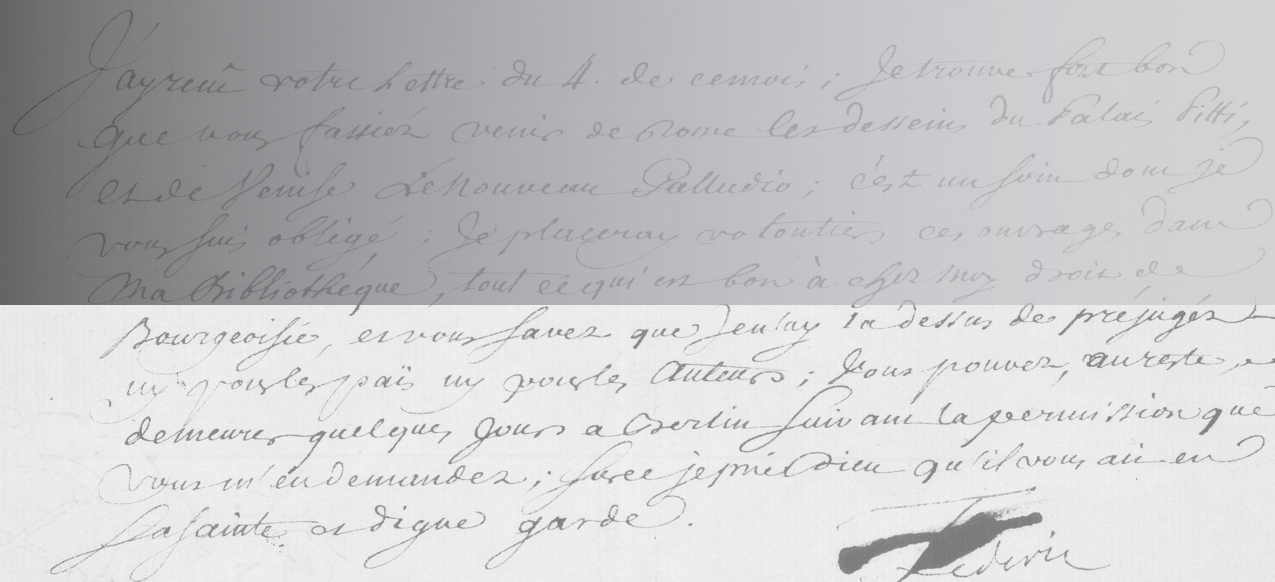 J'ay reçu votre Lettre du 4. de cemois ; Je trouve fort bon
que vous fassiéz venir de Rome les desseins du Palais Pitti,
et de Venise Le Nouveau Palladio ; c'est un soin dont je
vous suis obligé ; Je placeray volontiers ces ouvrages dans
Ma Bibliothéque, tout ce qui est bon à chez moy droit de
Bourgeoisie, et vous savez que Je n'ay la dessus de préjugéz
ny pour les païs ny pour les Auteurs ; Vous pouvez, au reste,
demeurer quelques Jours a Berlin suivant la permission que
vous m'en demandez ; sur ce je prie Dieu qu'il vous ait en
sa sainte et digne garde.
Federic